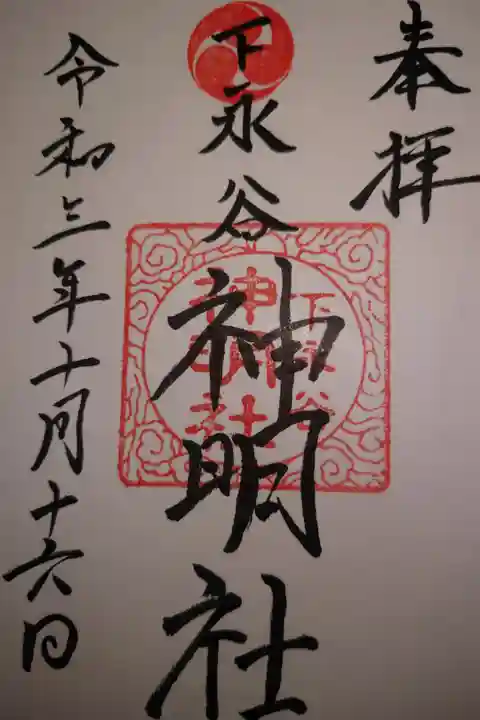 奉拝
下永谷
神明社
下永谷
神明社
令和三年十月十六日